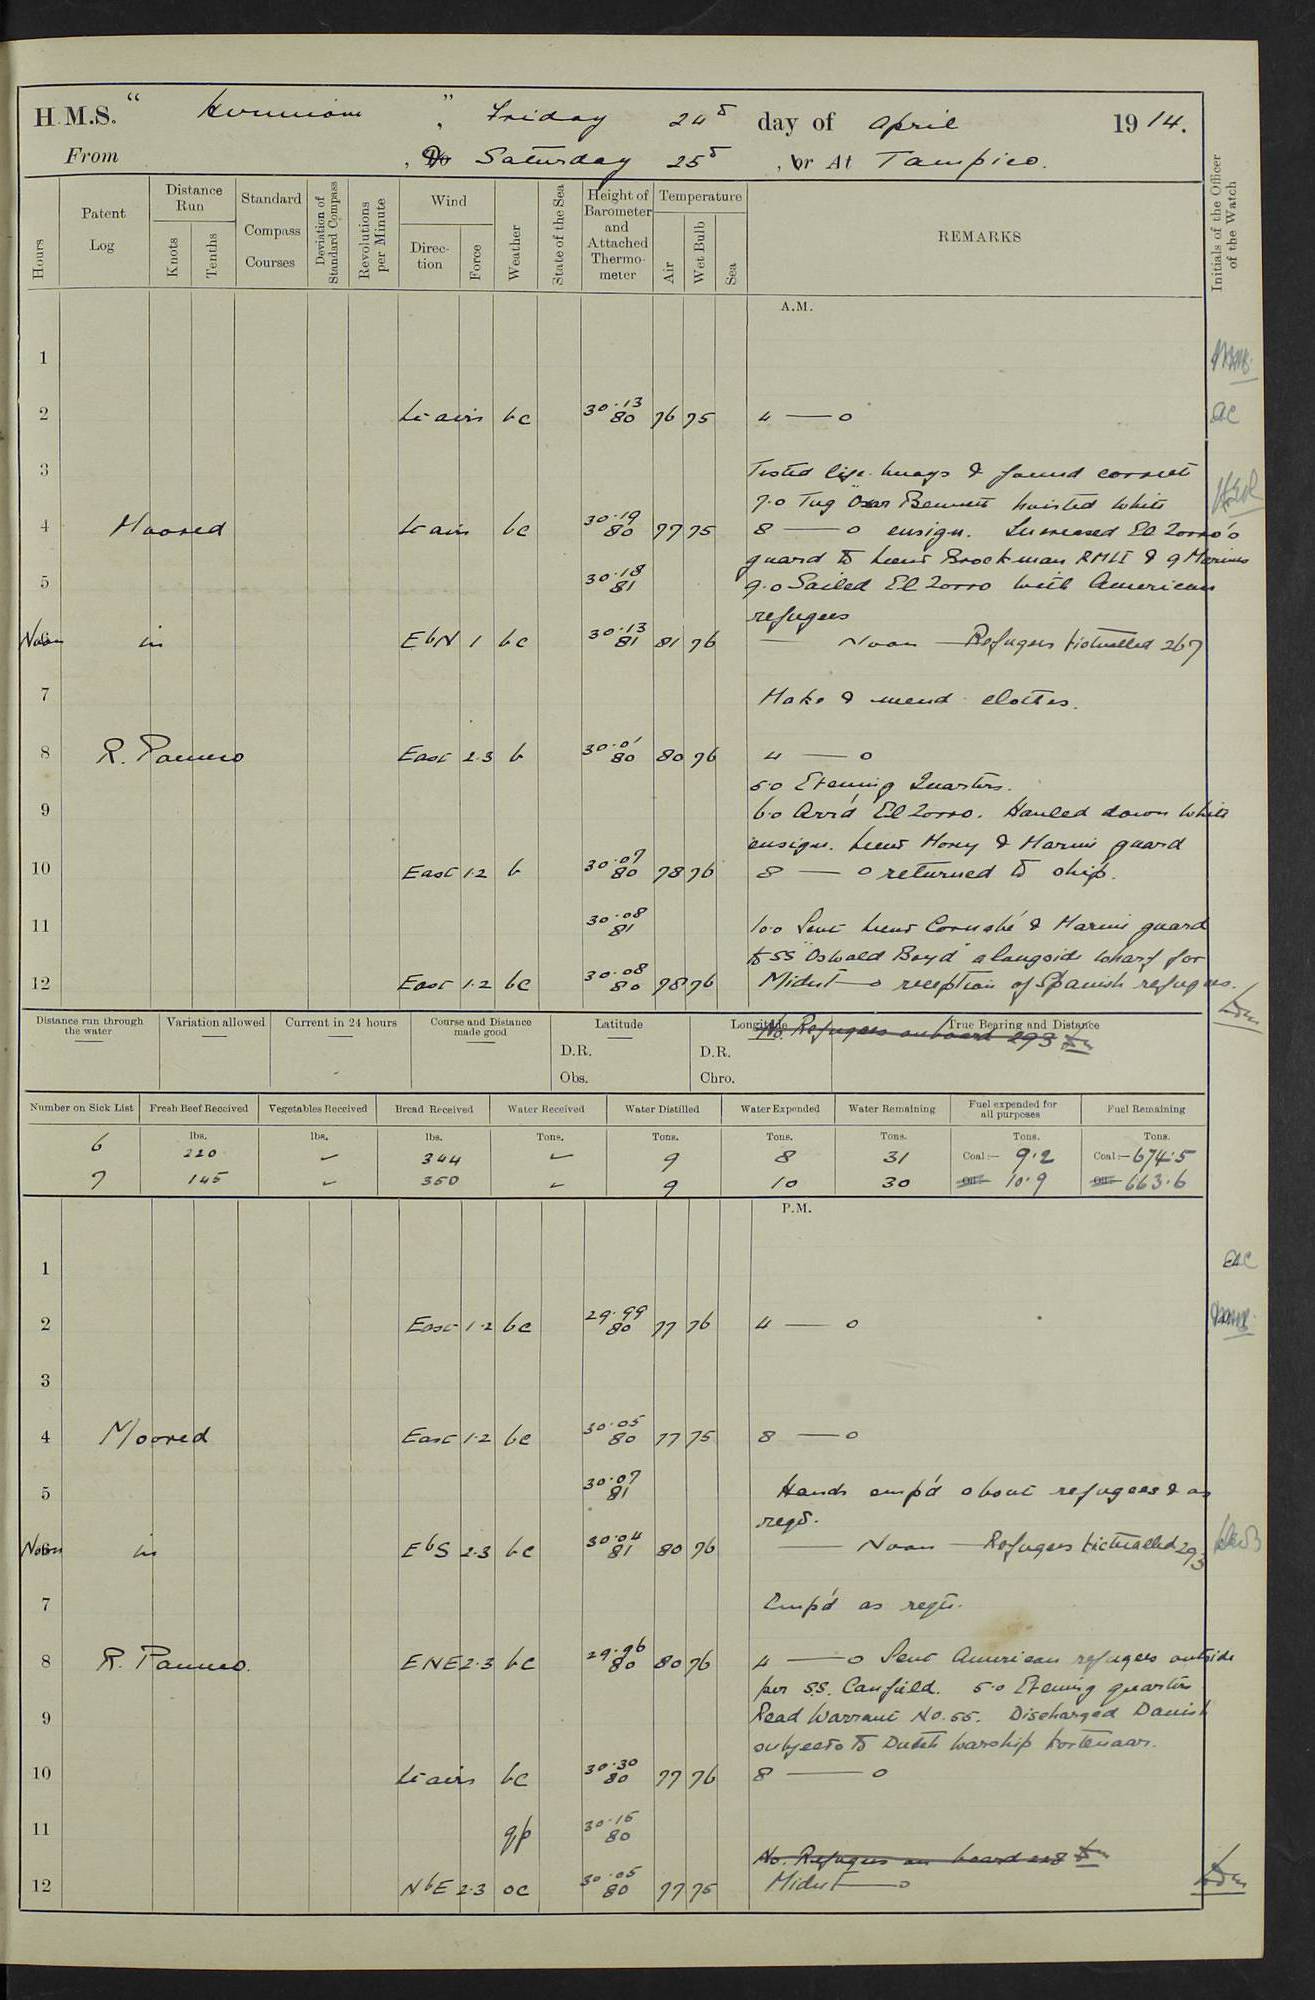 H.M.S. " Hermione " , Friday 24th day of April 1914.
From , To Saturday 25th , or At Tampico.
Hours
Patent Log
Distance Run
Knots
Tenths
Standard Compass Courses
Deviation of Standard Compass
Revolutions per Minute
Wind
Direction
Force
Weather
State of the Sea
Height of Barometer and Attached Thermometer
Temperature
Air
Wet Bulb
Sea
REMARKS
Initials of the Officer of the Watch
A.M.
1
2 Lt airs bc 30.13 80 76 75 4 — 0
3 Tested life buoys & found correct
7.0 Tug "Oscar Bennett" hoisted White
4 Moored Lt airs bc 30.19 80 77 75 8 — 0 ensign. Increased El Zorro's
guard to Lieut Brockman RMLI & 9 Marines
5 30.18 81 9.0 Sailed El Zorro with American
refugees
Noon in EbN 1 bc 30.13 81 81 76 — Noon — Refugees victualled 267
7 Make & mend clothes.
8 R. Panuco East 2.3 b 30.01 80 80 76 4 — 0
5.0 Evening Quarters.
9 6.0 Arrd El Zorro. Hauled down White
ensign. Lieut Morey & Marine guard
10 East 1.2 b 30.07 80 78 76 8 — 0 returned to ship.
11 30.08 81 10.0 Sent Lieut & Marine guard
to SS "Oswald Boyd" alongside wharf for
12 East 1.2 bc 30.08 80 78 76 Midnt — 0 reception of Spanish refugees.
Distance run through the water
Variation allowed
Current in 24 hours
Course and Distance made good
Latitude
D.R.
Obs.
Longitude
D.R.
Chro.
True Bearing and Distance
No. Refugees on board 293
Number on Sick List Fresh Beef Received Vegetables Received Bread Received Water Received Water Distilled Water Expended Water Remaining Fuel expended for all purposes Fuel Remaining
lbs. lbs. lbs. Tons. Tons. Tons. Tons. Tons. Tons.
6 220 ~ 344 ~ 9 8 31 Coal:— 9.2 Coal:— 674.5
7 145 ~ 350 ~ 9 10 30 Oil:— 10.9 Oil:— 663.6
P.M.
1
2 East 1.2 bc 29.99 80 77 76 4 — 0
3
4 Moored East 1.2 bc 30.05 80 77 75 8 — 0
5 30.07 81 Hands emp'd about refugees & as
reqd.
Noon in EbS 2.3 bc 30.04 81 80 76 — Noon — Refugees victualled 293
7 Emp'd as reqte.
8 R. Panuco. ENE 2.3 bc 29.96 80 80 76 4 — 0 Sent American refugees outside
per S.S. Canfield. 5.0 Evening quarters
9 Read Warrant No. 55. Discharged Danish
subjects to Dutch warship Kortenaar.
10 Lt airs bc 30.30 80 77 76 8 — 0
11 qp 30.15 80
No. Refugees on board
12 NbE 2.3 oc 30.05 80 77 75 Midnt — 0